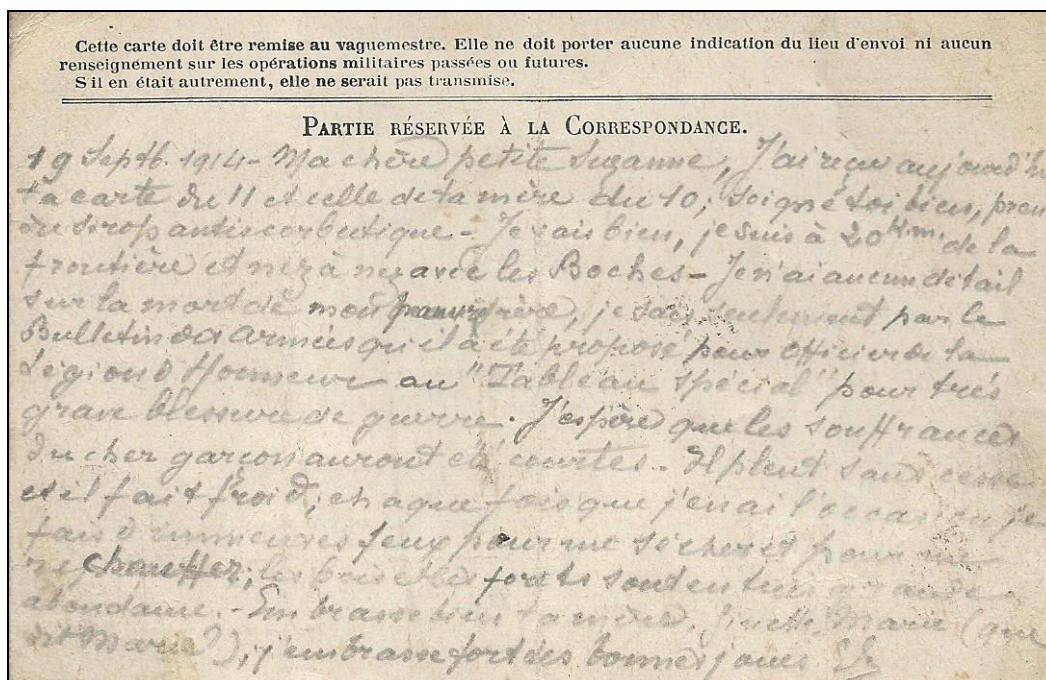 Cette carte doit être remise au vaguemestre. Elle ne doit porter aucune indication du lieu d'envoi ni aucun
renseignement sur les opérations militaires passées ou futures.
S'il en était autrement, elle ne serait pas transmise.
PARTIE RÉSERVÉE À LA CORRESPONDANCE.
19 Septb. 1914 - Ma chère petite Suzanne, J'ai reçu aujourd'hu
ta carte du 11 et celle de ta mère du 10; soigne toi bien, pren
du sirop antiscorbutique - Je sais bien, je suis à 20 Km. de la
frontière et nez à nez avec les Boches - Je n'ai aucun détail
sur la mort de mon pauvre frère, je sais seulement par le
Bulletin des armées qu'il a été proposé pour Officier de la
Légion d'Honneur au "Tableau spécial" pour très
grave blessure de guerre. J'espère que les souffrances
du cher garçon auront été courtes. Il pleut sans cesse
et il fait froid; chaque fois que j'en ai l'occasion je
fais d'immenses feux pour me sécher et pour me
réchauffer; les bois et les forêts sont en très grande
abondance. - Embrasse bien ta mère, Marie (que
dit Marie?), j'embrasse fort ses bonnes joues